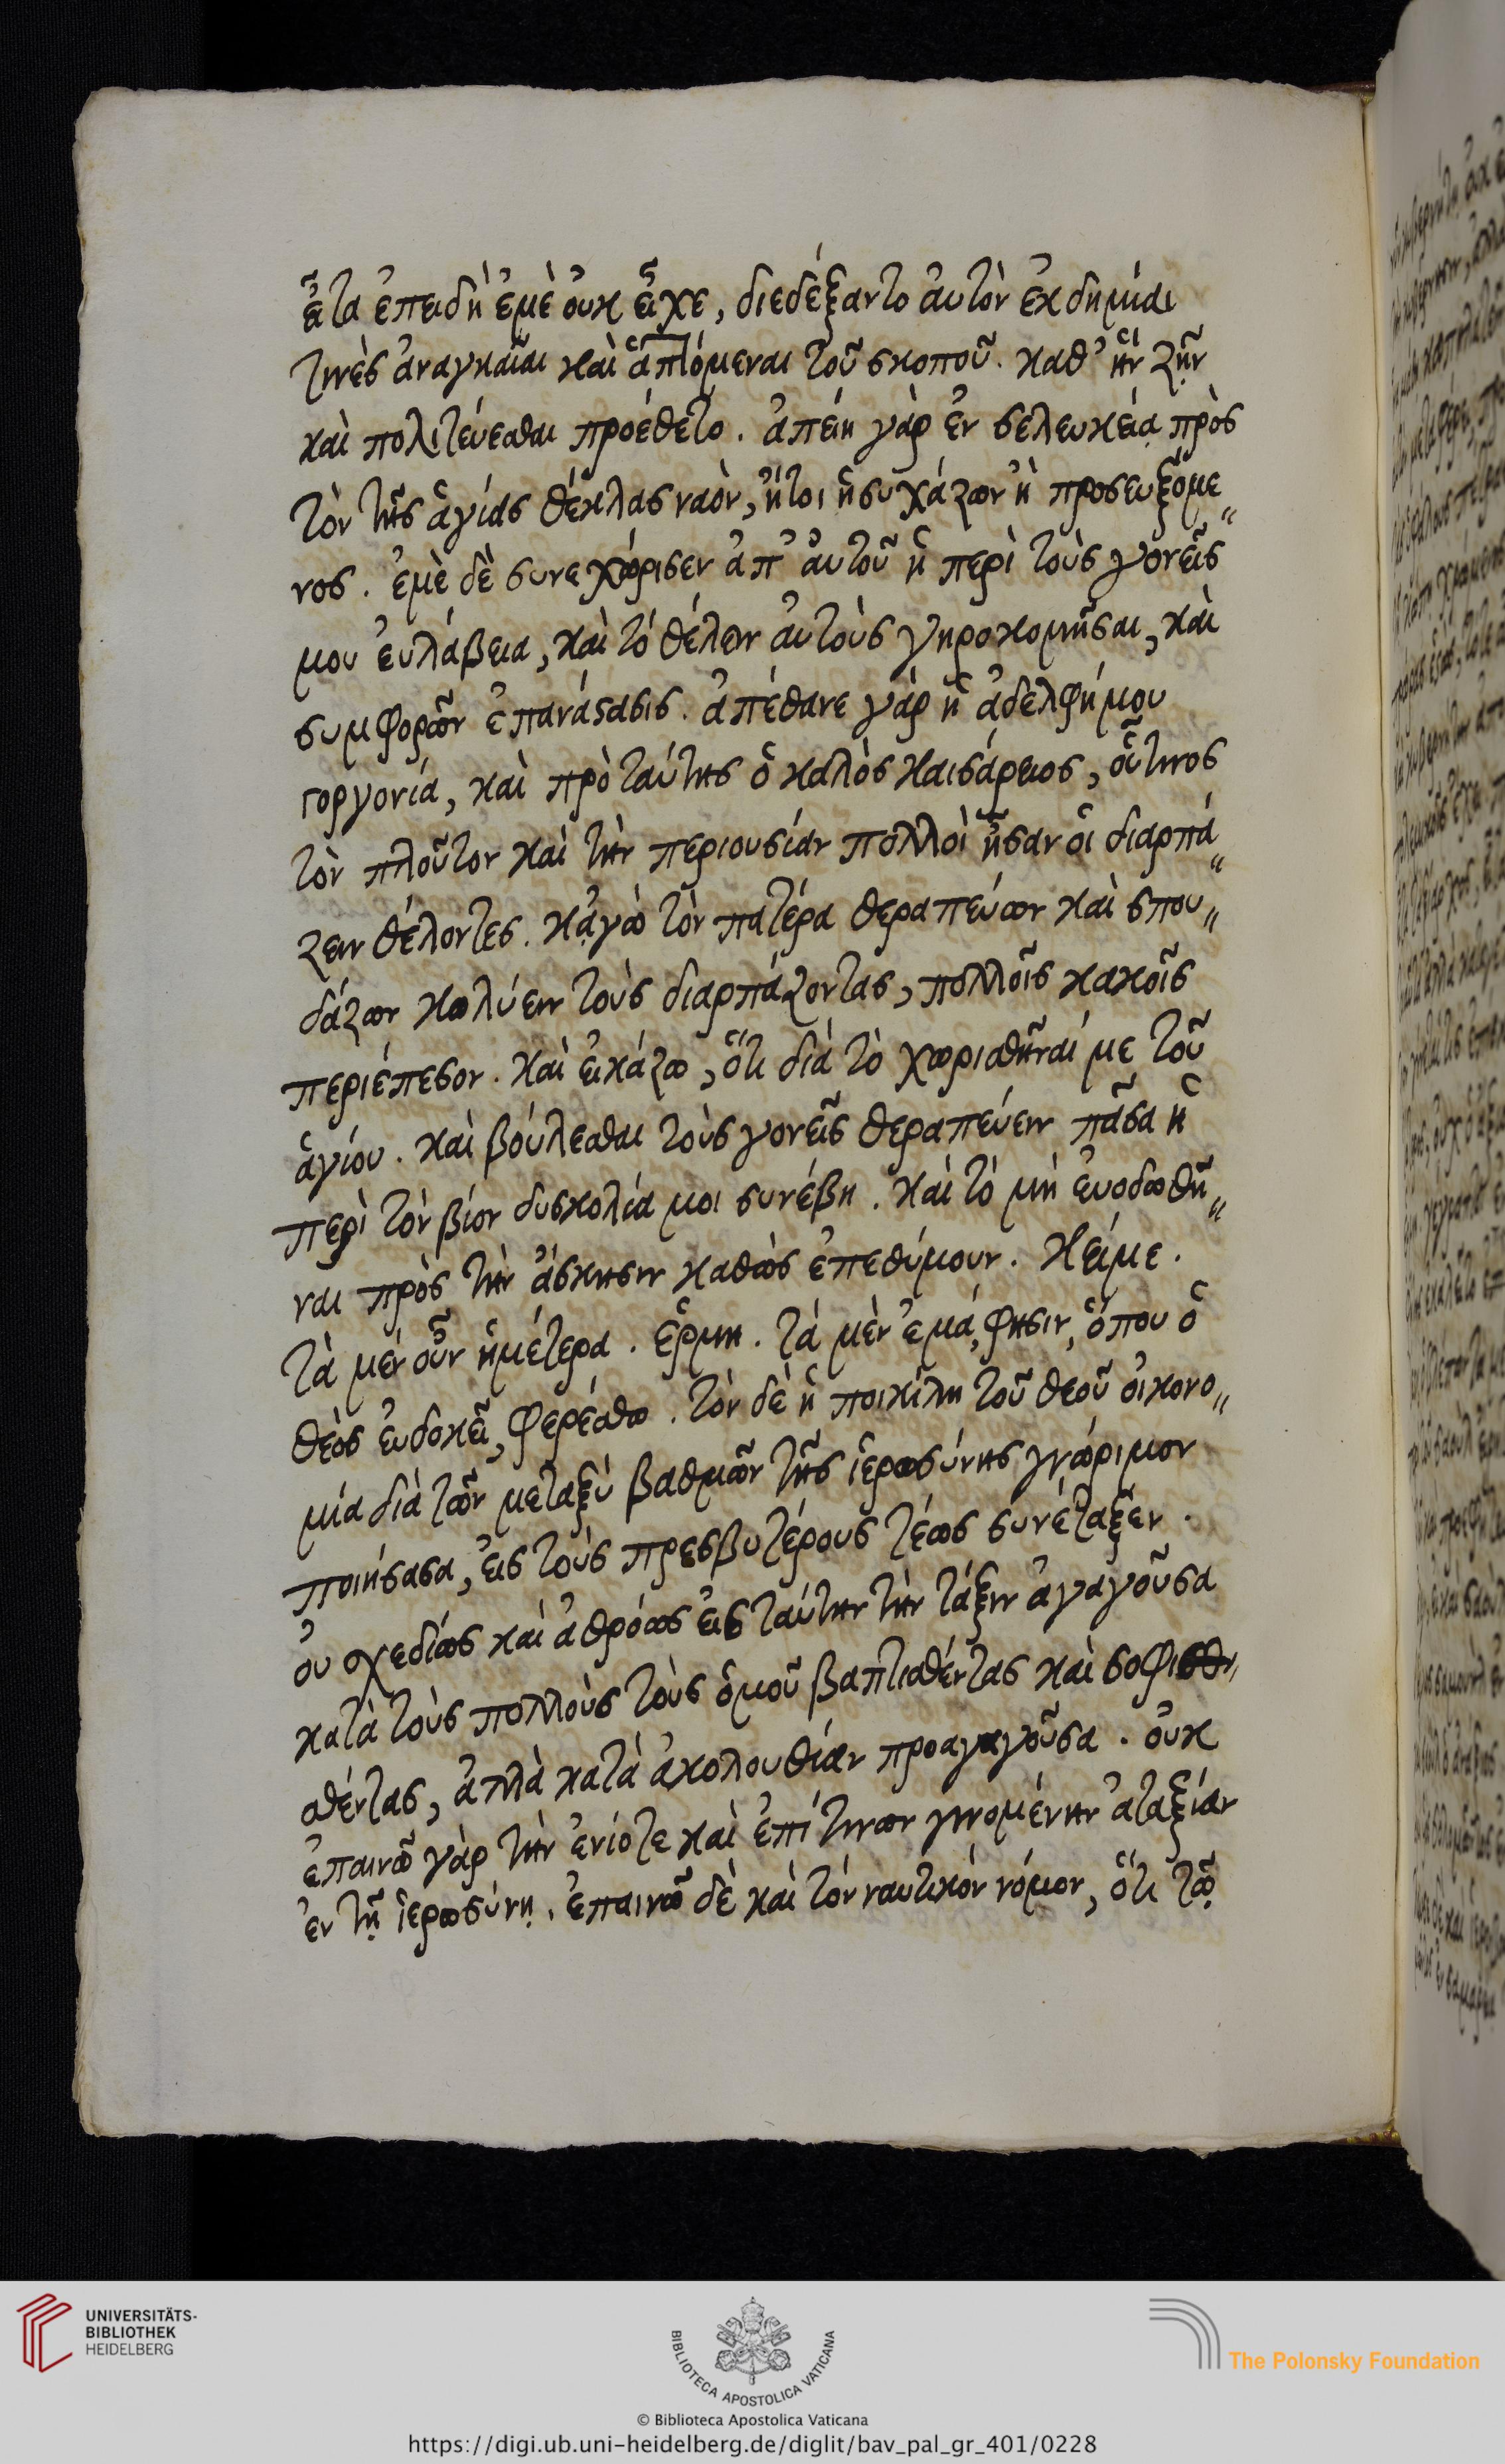 εἶτα ἐπειδὴ ἐμὲ οὐκ εἶχε, διεδέξαντο ἀυτὸν ἐκδημίαι
τινὲς ἀναγκαῖαι καὶ ἁπτόμεναι τοῦ σκοποῦ. καθ' ἣν ζῆν
καὶ πολιτεύεσθαι προέθετο. ἀπείη γὰρ ἐν σελευκείᾳ πρὸς
τὸν τῆς ἁγίας θέκλας ναὸν, ἤτοι ἡσυχάζων ἢ προσευξόμε„
νος. ἐμὲ δὲ συνεχώρισεν ἀπ' ἀυτοῦ ἡ περὶ τοὺς γονεῖς
μου ἐυλάβεια, καὶ τό θέλειν ἀυτοὺς γηροκομῆσαι, καὶ
συμφορῶν ἐπανάστασις. ἀπέθανε γὰρ ἡ ἀδελφή μου
γοργονία, καὶ πρὸ ταύτης ὁ καλὸς καισάρειος, οὗτινος
τὸν πλοῦτον καὶ τὴν περιουσίαν πολλοὶ ἦσαν οἱ διαρπά„
ζειν θέλοντες. κᾀγὼ τὸν πατέρα θεραπεύων καὶ σπου„
δάζων κωλύειν τοὺς διαρπάζοντας, πολλοῖς κακοῖς
περιέπεσον. καὶ εἰκάζω, ὅτι διὰ τὸ χωρισθῆναί με τοῦ
ἁγίου. καὶ βούλεσθαι τοὺς γονεῖς θεραπεύειν πᾶσα ἡ
περὶ τὸν βίον δυσκολία μοι συνέβη. καὶ τό μὴ ἐυοδωθῆ„
ναι πρὸς τὴν ἄσκησιν καθὼς ἐπεθύμουν. κείμε.
τὰ μὲν οὖν ἡμέτερα. ἑρμη. τὰ μὲν ἐμά, φησιν, ὅπου ὁ
θεὸς ἐυδοκεῖ, φερέσθω. τὸν δὲ ἡ ποικίλη τοῦ θεοῦ οἰκονο„
μία διὰ τῶν μεταξὺ βαθμῶν τῆς ἱερωσύνης γνώριμον
ποιήσασα, εἰς τοὺς πρεσβυτέρους τέως συνέταξεν.
ὀυ σχεδίως καὶ ἀθρόως εἰς ταύτην τὴν τάξιν ἀγαγοῦσα
κατὰ τοὺς πολλοὺς τοὺς ὁμοῦ βαπτισθέντας καὶ σοφι
σθέντας, ἀλλὰ κατὰ ἀκολουθίαν προαγαγοῦσα. ὀυκ
ἐπαινῶ γὰρ τὴν ἐνίοτε καὶ ἐπί τινων γινομένην ἀταξίαν
ἐν τῇ ἱερωσύνῃ. ἐπαινῶ δὲ καὶ τὸν ναυτικὸν νόμον, ὅτι τῷ
UNIVERSITÄTS-
BIBLIOTHEK
HEIDELBERG
BIBLIOTECA APOSTOLICA VATICANA
The Polonsky Foundation
© Biblioteca Apostolica Vaticana
https://digi.ub.uni-heidelberg.de/diglit/bav_pal_gr_401/0228